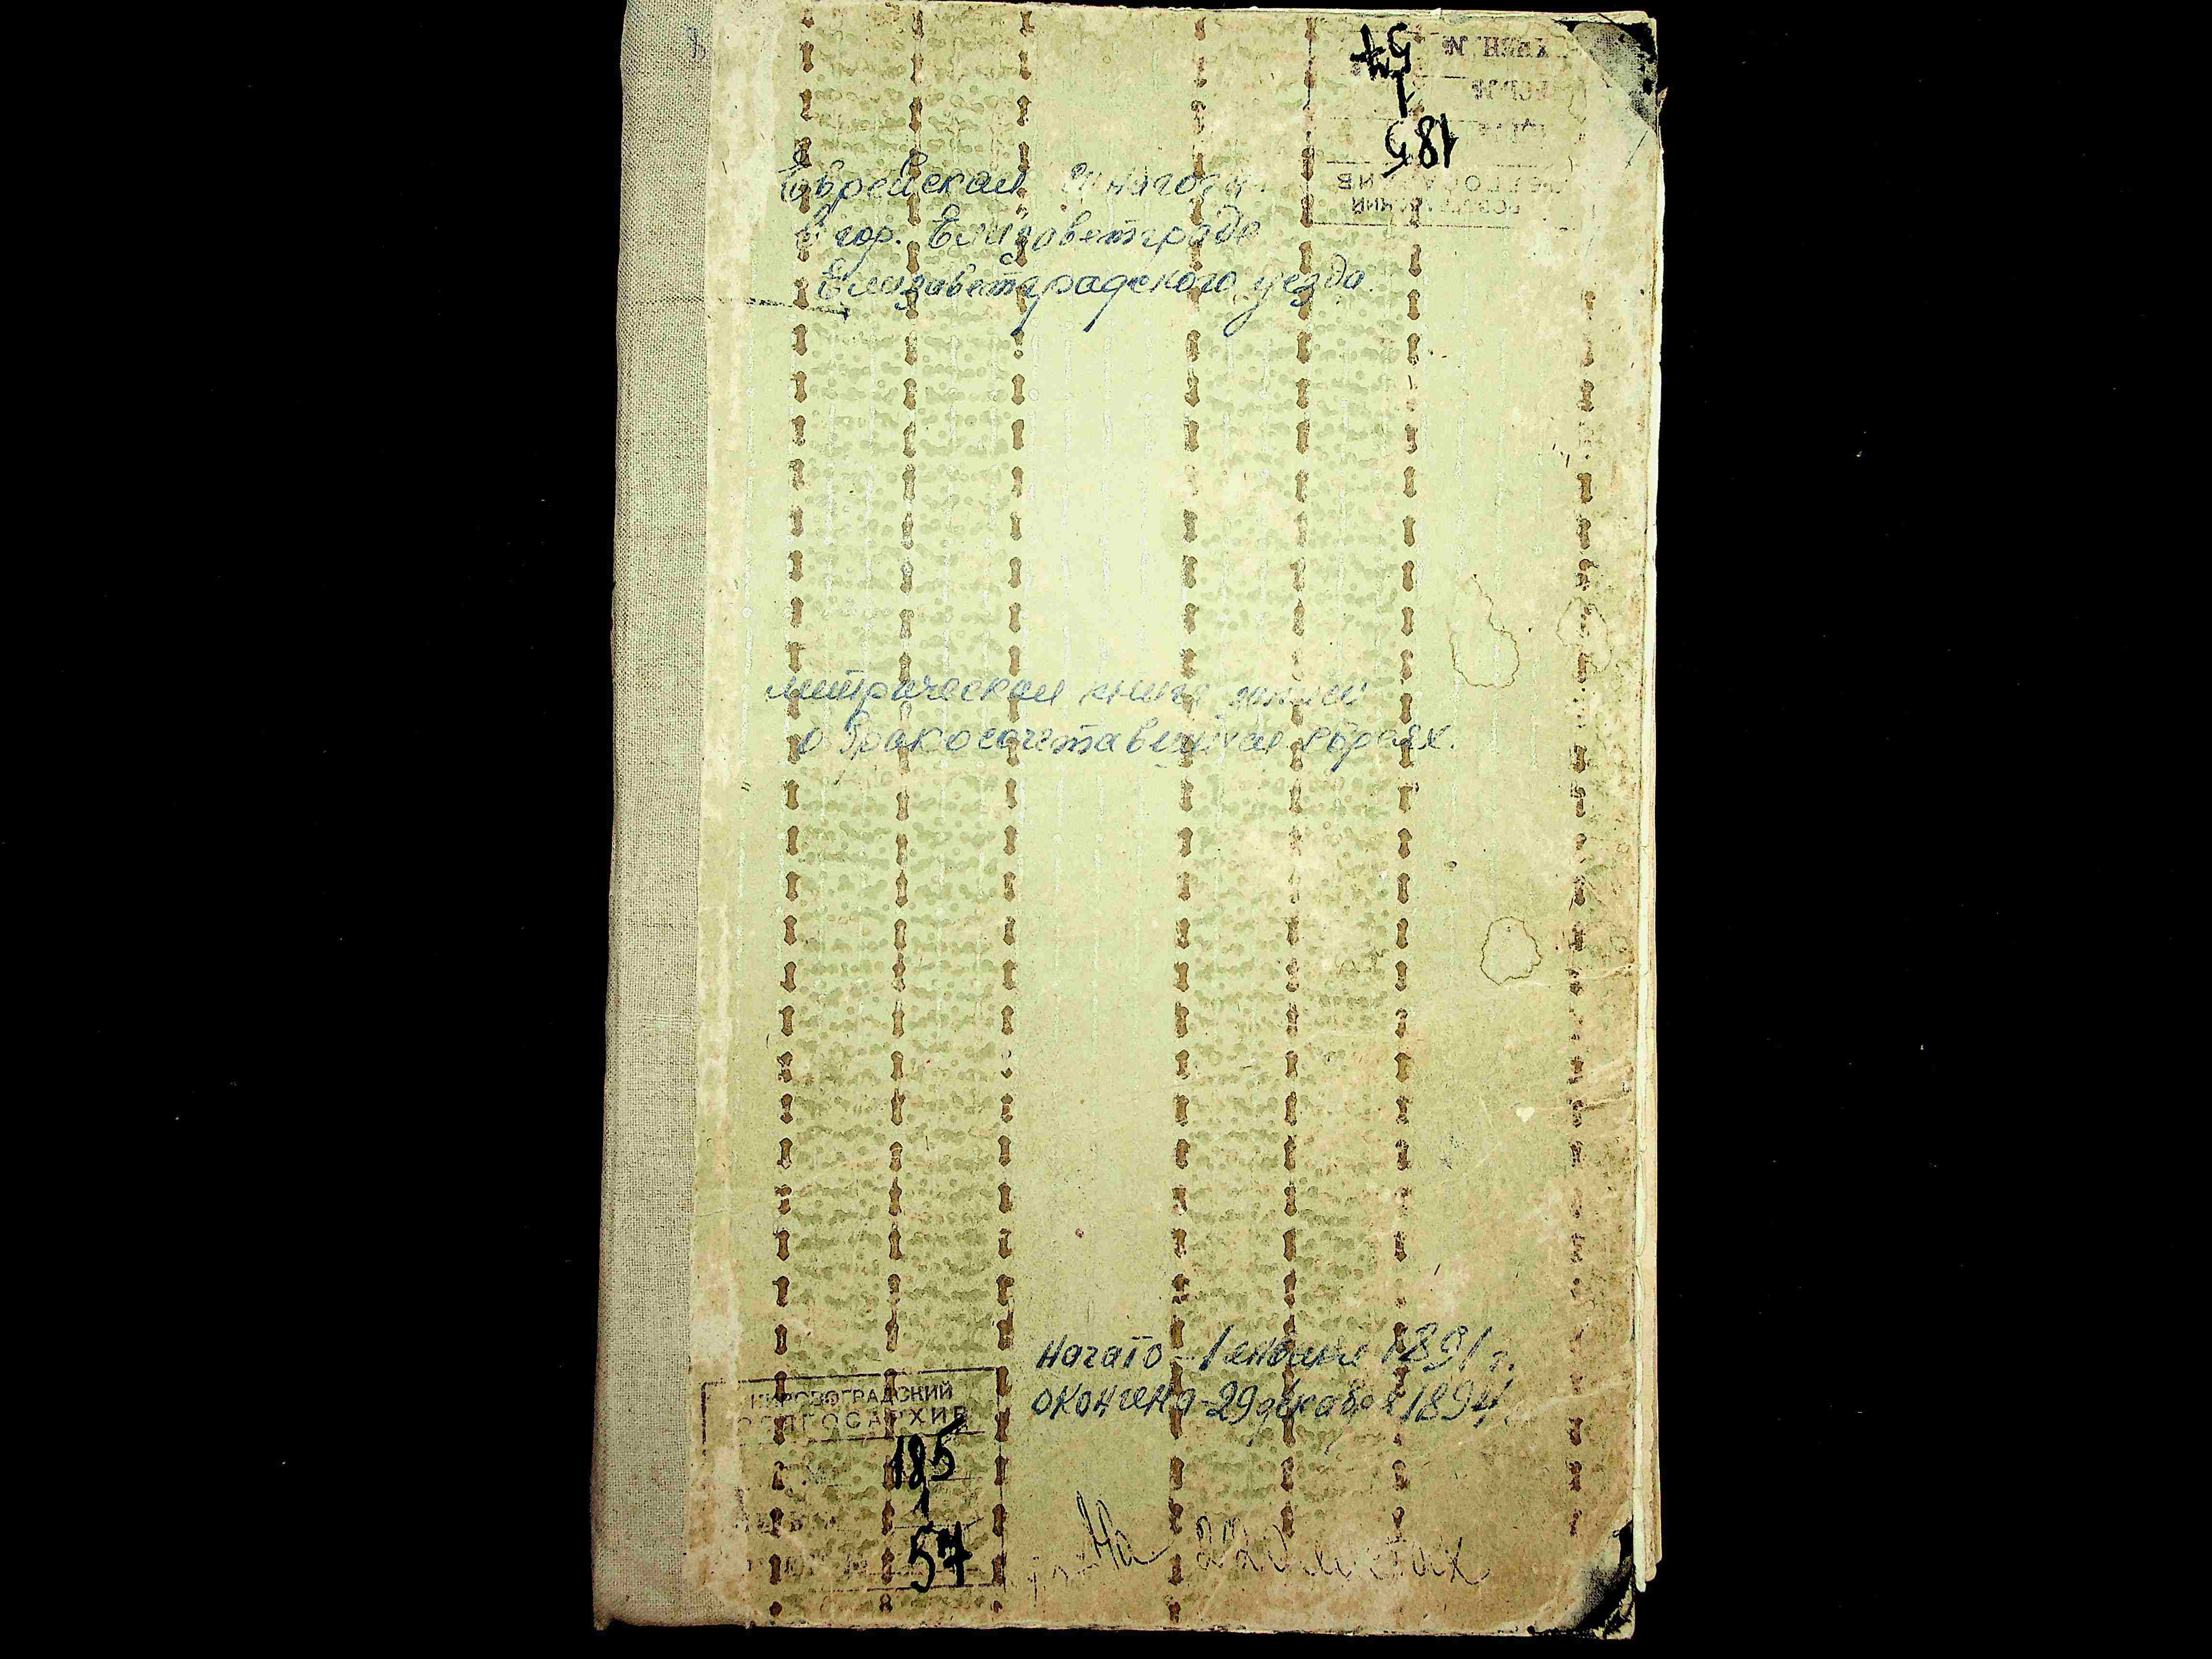 185
1
57
Еврейская синагога
в гор. Елизаветграде
Елизаветградского уезда.
метрическая книга записей
о бракосочетавшихся евреях.
Начато - 1 января 1891 г.
Окончено - 29 декабря 1894
КИРОВОГРАДСКИЙ
ОБЛГОСАРХИВ
185
1
57
На 220 листах